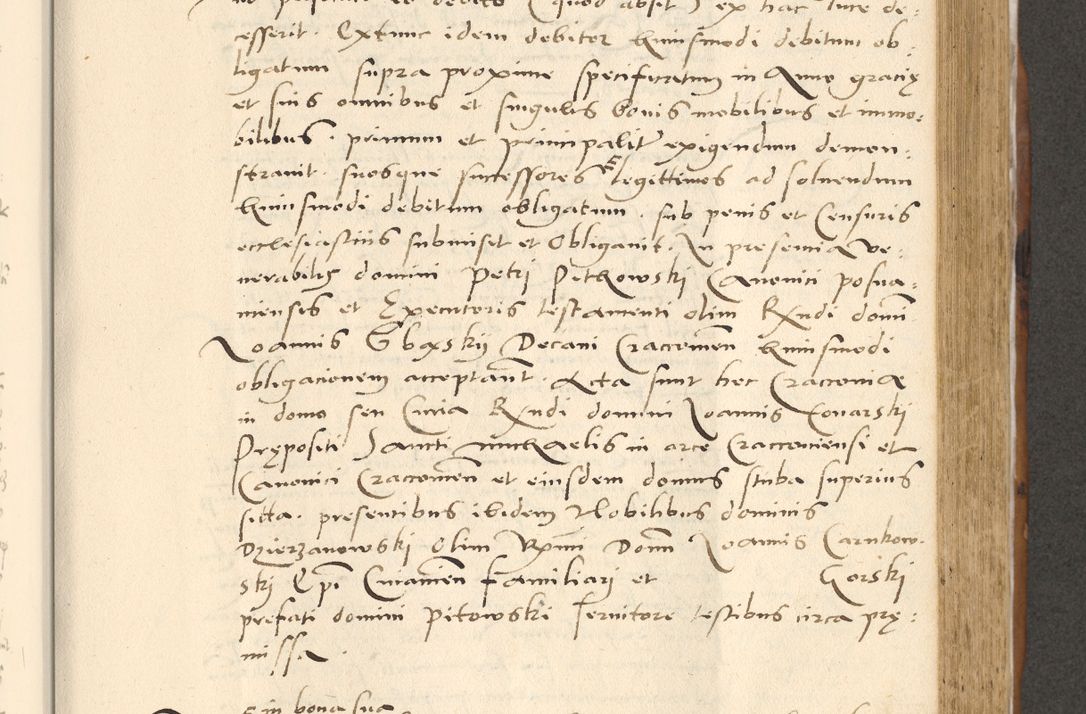 esserit. Extunc idem debitor huiusmodi debitum ob:
ligatum supra proxime specificatum in Anno gracię
et suis omnibus et singulis bonis mobilibus et immo:
bilibus. primum et principalit exigendum demon:
stravit. suosque successores legittimos ad solvendum
huiusmodi debitum obligatum. sub penis et Censuris
ecclesiasticis submisit et Obligavit. In presencia ve:
nerabilis domini Petri Pitkowski Canonici posna:
niensis et Executoris testamenti olim Rndi domi
Joannis Gbaxskij Decani Cracovien huiusmodi
obligacionem acceptant. Acta sunt hec Cracovie
in domo seu Curia Rndi domini Joannis Conarski
Prępositi Sancti michaelis in arce Cracoviensi et
Canonici Cracovien et eiusdem domus stuba superius
sitta. presentibus ibidem Nobilibus dominis
Dzierzanowski Olim Rmi Domn Joannis Carnkow:
ski Epi Cuiavien familiari et Gorski
prefati domini Pitowski servitore testibus circa prę:
missa.
in bona sua